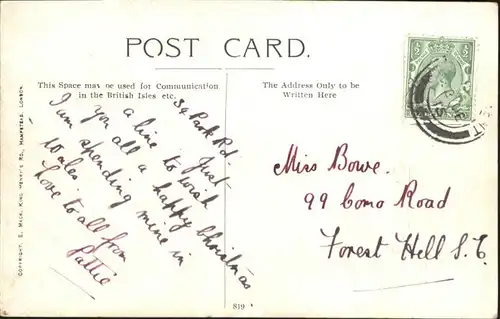 POST CARD.
This Space may be used for Communication
in the British Isles etc.
The Address Only to be
Written Here
34 Park Rd.
Just
a line to wish
you all a happy Christmas
I am spending mine in
Wales
Love to all from
Lattie
Miss Bowe.
99 Como Road
Forest Hill S.E.
COPYRIGHT. E. MACK, KING HENRY'S RD., HAMPSTEAD, LONDON.
819